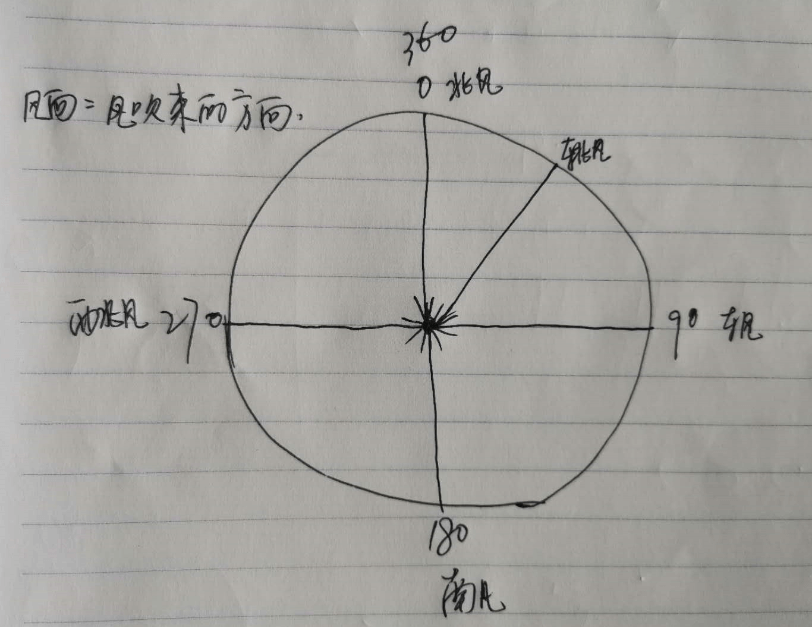 360
0 北风
风向=风吹来的方向.
东北风
西北风 270
90 东风
180
南风